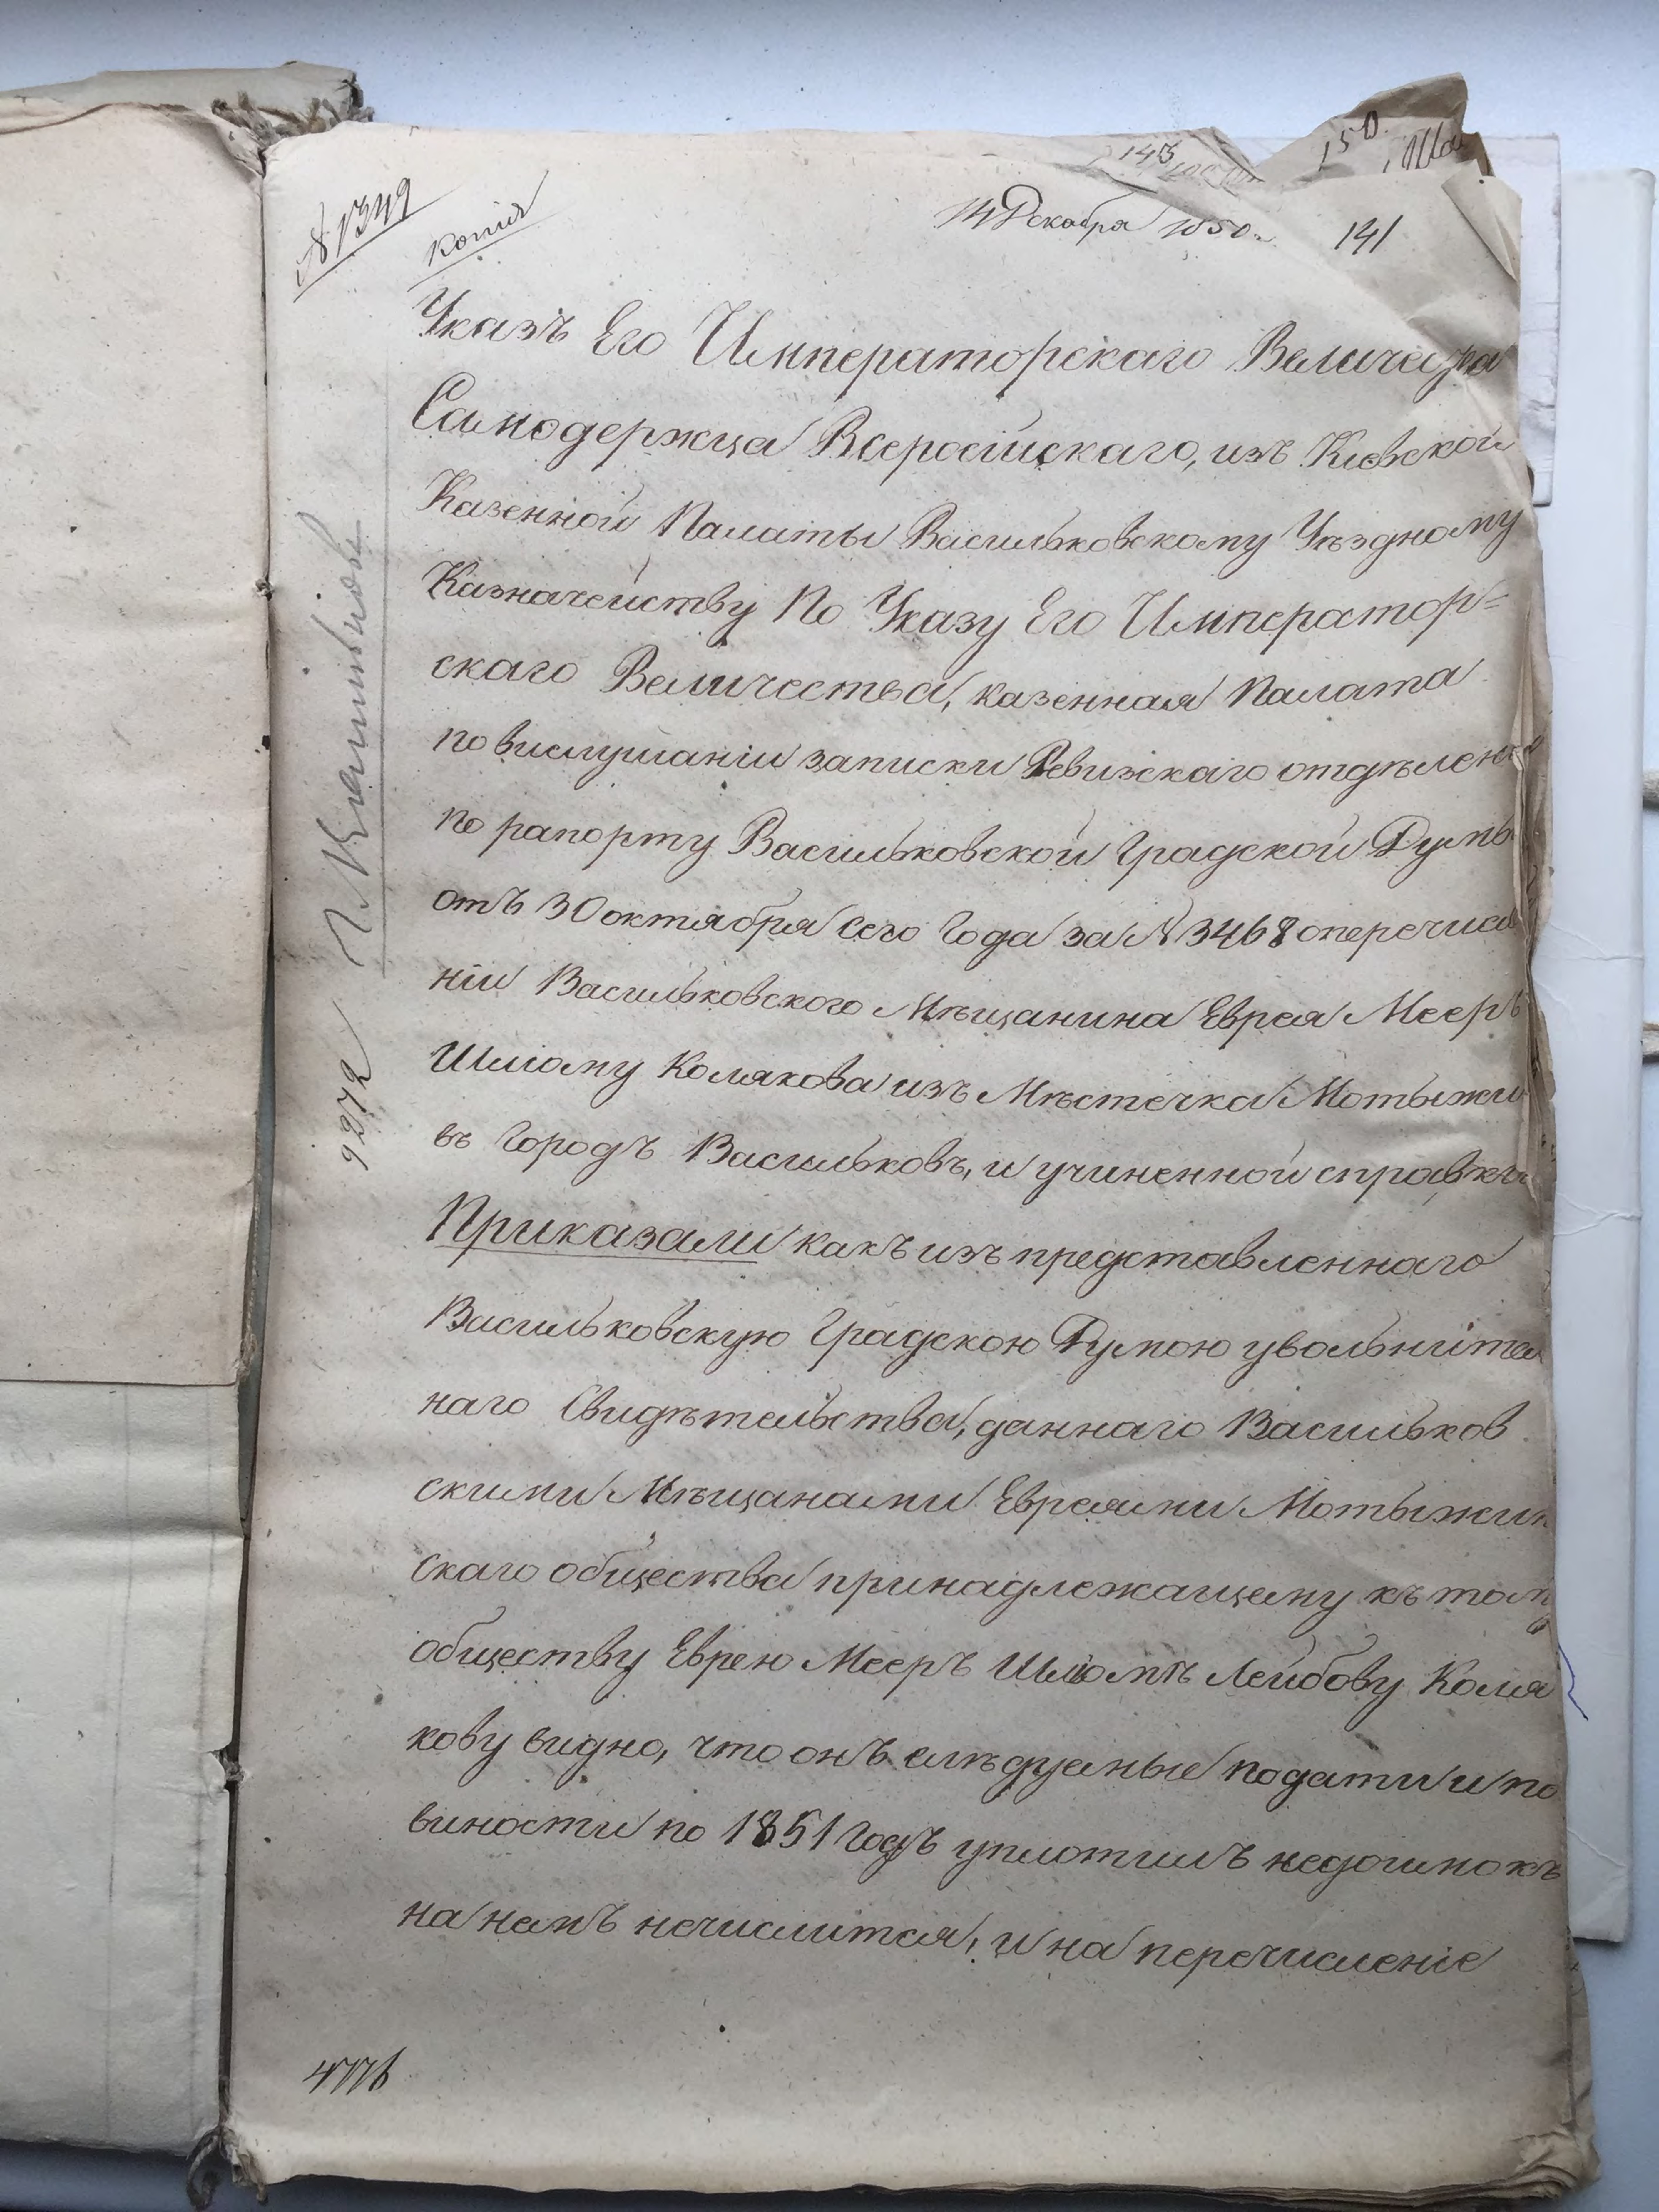 № 1349
копія
14 Декабря 1850 г.
141
143
150.
Указъ Его Императорскаго Величества
Самодержца Всеросійскаго, изъ Кіевской
Казенной Палаты Васильковскому Уѣздному
Казначейству По Указу Его Император=
скаго Величества, казенная Палата
по вислушаніи записки Ревизкаго отдѣлені
по рапорту Васильковской Градской Думы
отъ 30 октября сего Года за № 3468 о перечисле
ніи Васильковского Мѣщанина Еврея Мееръ
Шліому Колякова изъ Мѣстечка Мотыжи
въ Городъ Васильковъ, и учиненной справкѣ
Приказали какъ изъ представленнаго
Васильковскую Градскою Думою увольнител
наго Свидѣтельства, даннаго Васильков
скими Мѣщанами Евреями Мотыжин
скаго общества принадлежащему къ тому
обществу Еврею Мееръ Шліомѣ Лейбову Коля
кову видно, что онъ слѣдуемые подати и по
виности по 1851 Годъ уплотилъ недоимокъ
на немъ нечислится, и на перечисленіе
9272
4776